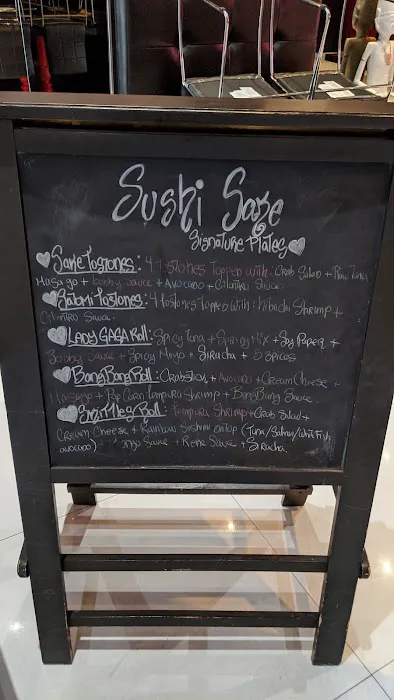 Sushi Sake
Signature Plates
Sake Tostones: 4 Tostones Topped with: Crab Salad + Raw Tuna
Masago + Bobby Sauce + Avocado + Cilantro Sauce
Tostones: 4 tostones Topped with: hibachi Shrimp +
Cilantro Sauce.
LADY GAGA Roll: Spicy Tuna + Spicy Mix + Soy Paper +
Bobby Sauce + Spicy Mayo + Siracha + 5 Spices
Bang Bang Roll: Crab Stick + Avocado + Cream Cheese +
Masago + Pop Corn Tempura Shrimp + Bang Bang Sauce.
Roll: Tempura Shrimp + Crab Salad +
Cream Cheese + Rainbow Sashimi onTop (Tuna/Salmon/White Fish
avocado) Sauce + Sauce + Siracha.